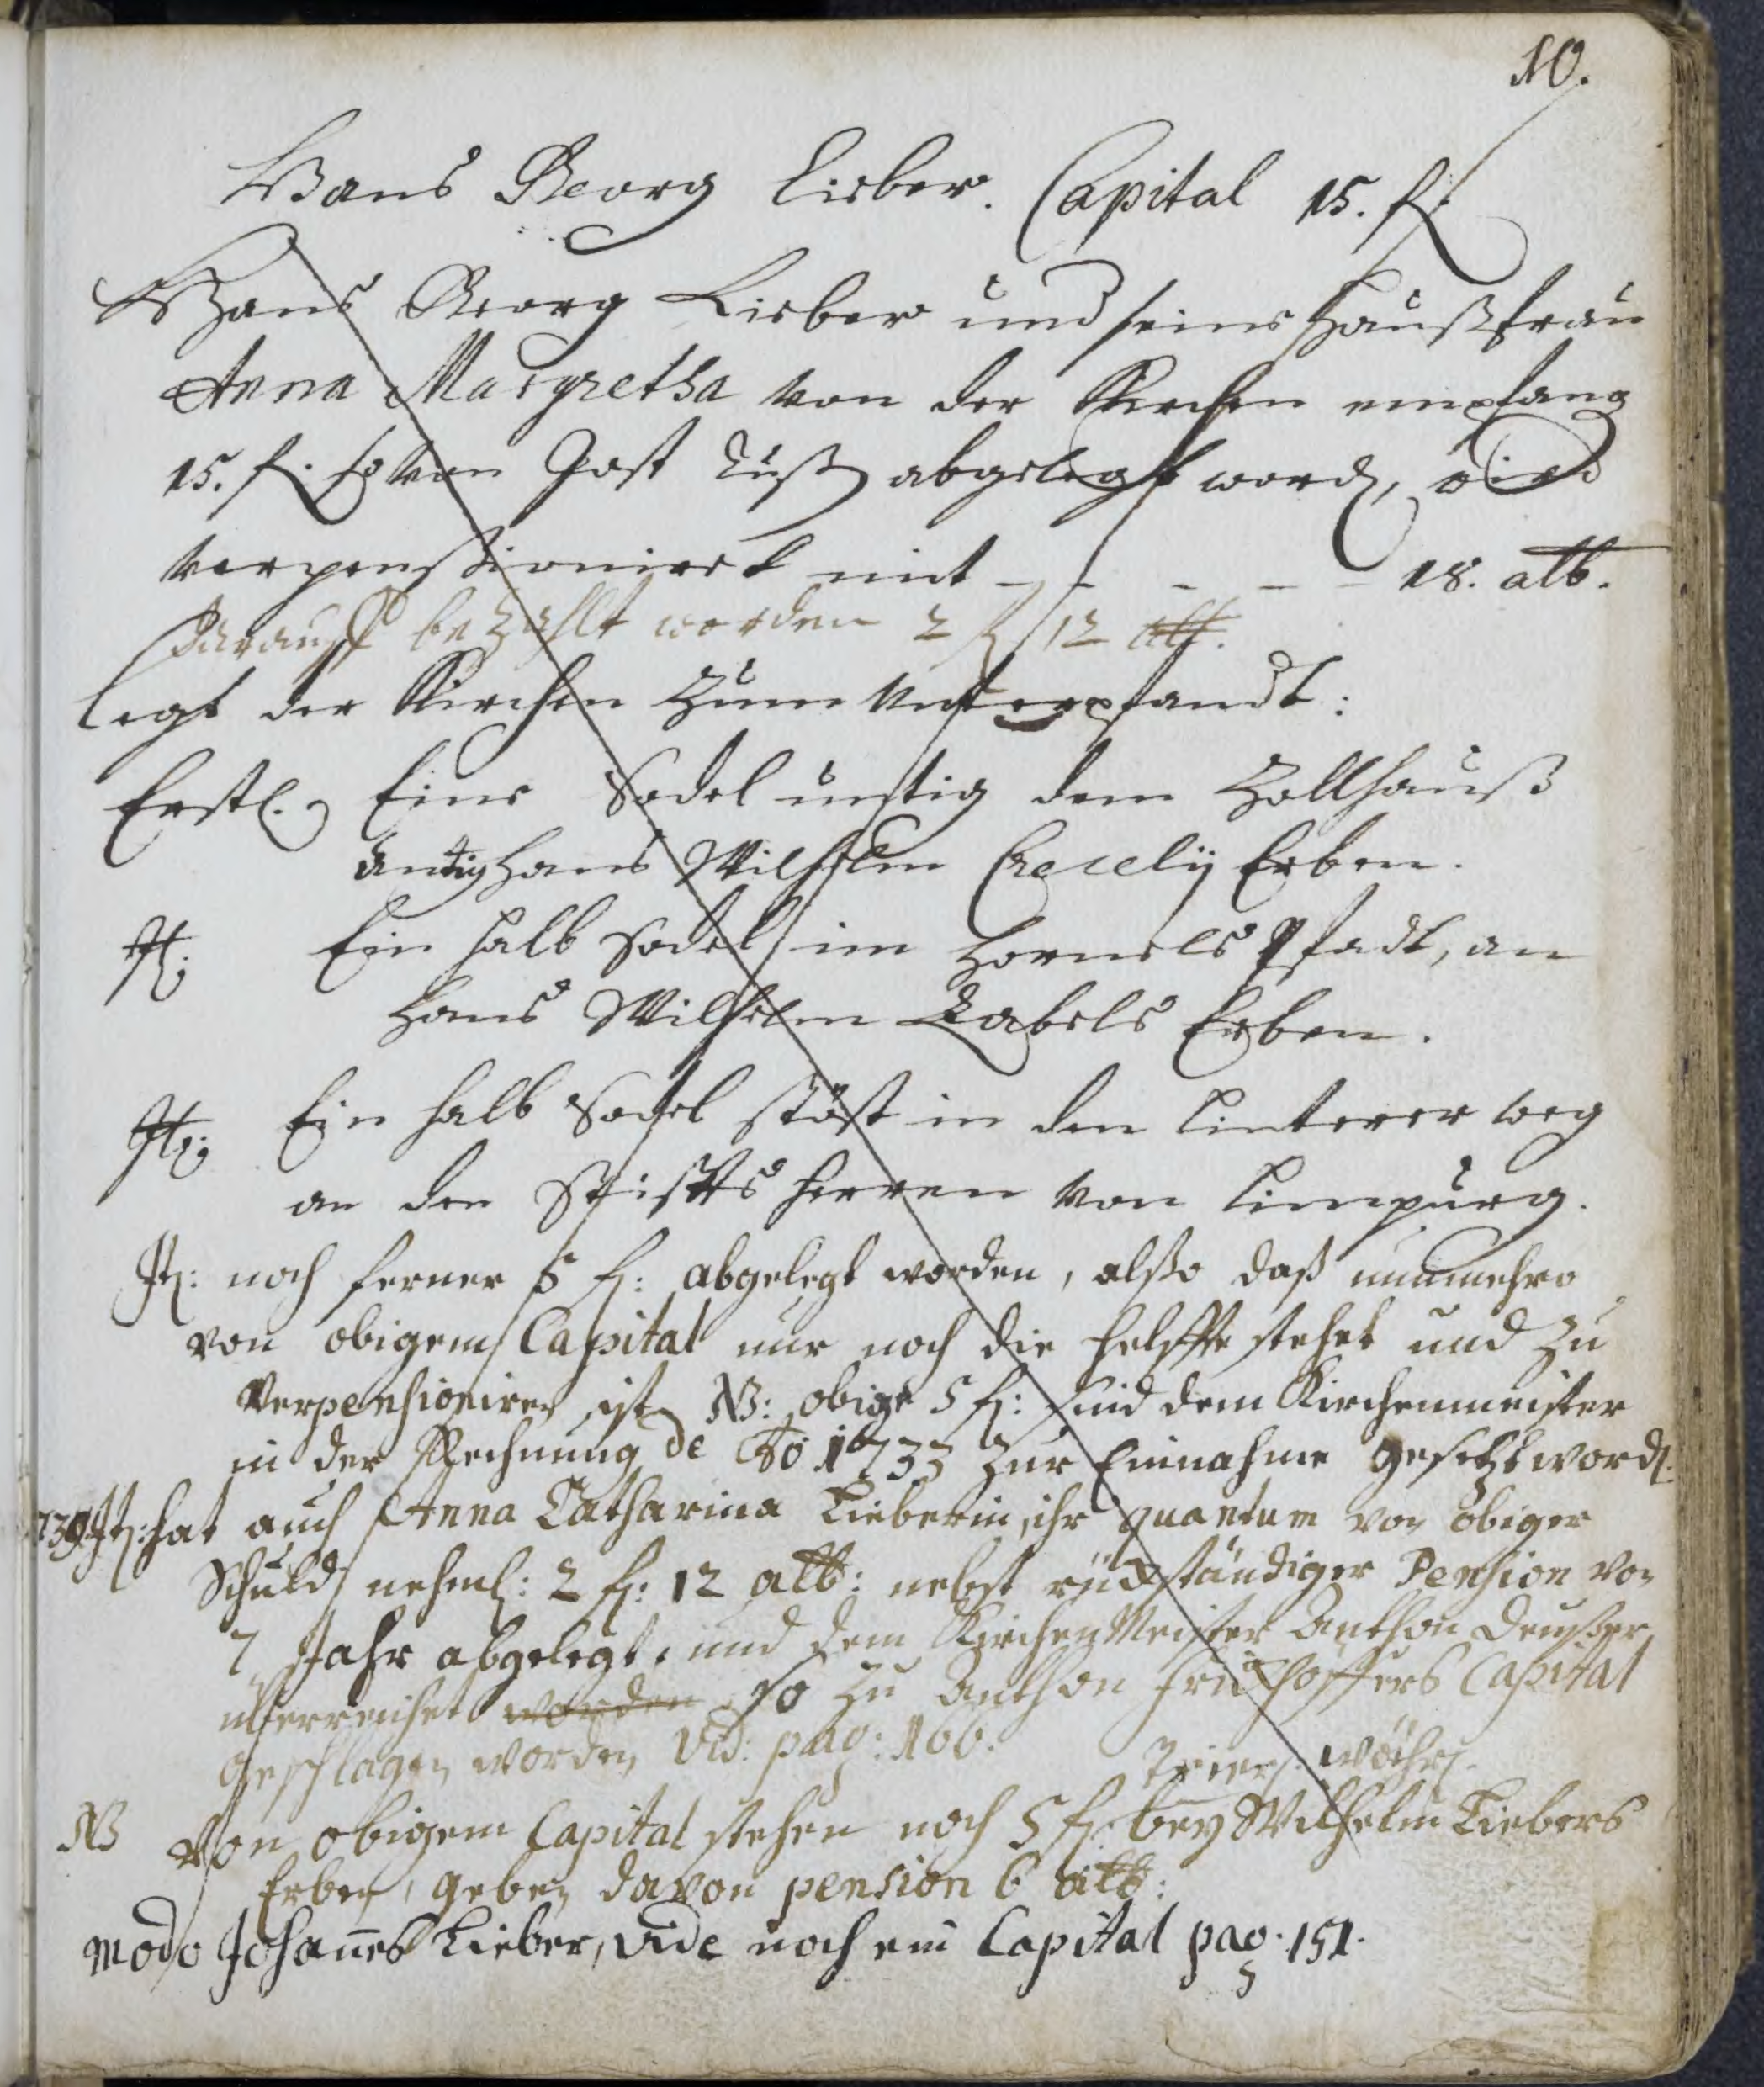 10.
Hans Georg Lieber. Capital 15. fl.
Hans Georg Lieber und seine Haußfrau
Anna Margretha von der Kirchen empfang
15. fl. so von Jost abgelegt word, wird
verpensionirt mit - - - - - 18. alb.
darauff bezahlt worden 2 fl 12 alb.
legt der Kirchen zum Unterpfandt:
Erstl. Eine Sodel unstig dem Zollhauß
Hans Wilhelm Erben.
It: Ein halb Sodel im Pfadt, an
Hans Wilhelm Zabels Erben.
It: Ein halb Sodel stöst in den Linterer weg
an den Stiffts Herren von Limpurg.
It: noch ferner 5 fl: abgelegt worden, alßo daß nunmehro
von obigem Capital nur noch die helffte stehet und zu
verpensioniren ist. NB: obige 5 fl: sind dem Kirchenmeister
in der Rechnung de ão 1733 zur Einnahme gesetzt word.
739 It: hat auch Anna Catharina Lieberin, ihr quantum von obiger
Schuld nehml: 2 fl: 12 alb: nebst rückständiger Pension von
7 Jahr abgelegt. und dem Kirchen Meister Anthon
überreichet worden so zu Anthon Capital
geschlagen worden vid: pag: 166.
Trier. währ.
NB Von obigem Capital stehen noch 5 fl. bey Wilhelm Liebers
Erben, geben davon pension 6 alb:
modo Johañes Lieber, vide noch ein Capital pag. 151.